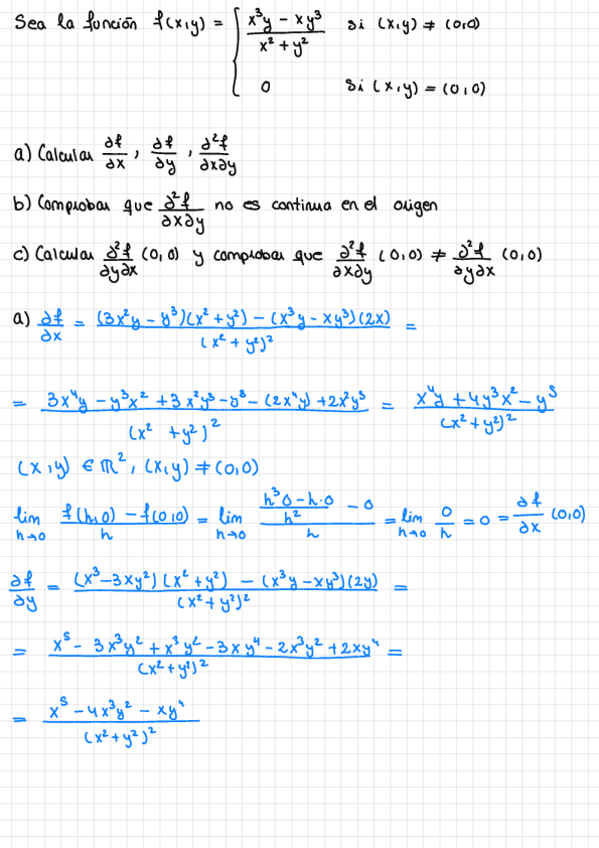 Sea la función f(x,y) = { x³y - xy³ / x² + y² si (x,y) ≠ (0,0)
0 si (x,y) = (0,0)
a) Calcular ∂f/∂x , ∂f/∂y , ∂²f/∂x∂y
b) Comprobar que ∂²f/∂x∂y no es continua en el origen
c) Calcular ∂²f/∂y∂x (0,0) y comprobar que ∂²f/∂x∂y (0,0) ≠ ∂²f/∂y∂x (0,0)
a) ∂f/∂x = (3x²y - y³)(x² + y²) - (x³y - xy³)(2x) / (x² + y²)² =
= 3x⁴y - y³x² + 3x²y³ - y⁵ - (2x⁴y) + 2x²y³ / (x² + y²)² = x⁴y + 4y³x² - y⁵ / (x² + y²)²
(x,y) ∈ ℝ², (x,y) ≠ (0,0)
lim h→0 f(h,0) - f(0,0) / h = lim h→0 h³0 - h·0 / h² - 0 / h = lim h→0 0/h = 0 = ∂f/∂x (0,0)
∂f/∂y = (x³ - 3xy²)(x² + y²) - (x³y - xy³)(2y) / (x² + y²)² =
= x⁵ - 3x³y² + x³y² - 3xy⁴ - 2x³y² + 2xy⁴ / (x² + y²)² =
= x⁵ - 4x³y² - xy⁴ / (x² + y²)²